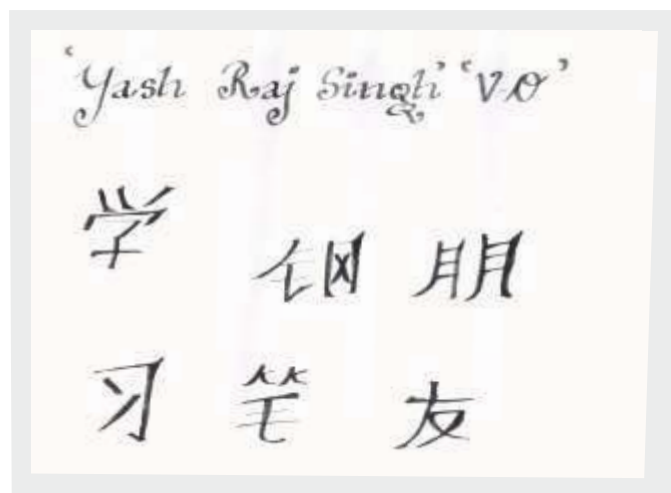 'Yash Raj Singh' 'V.O'
学习
钢笔
朋友